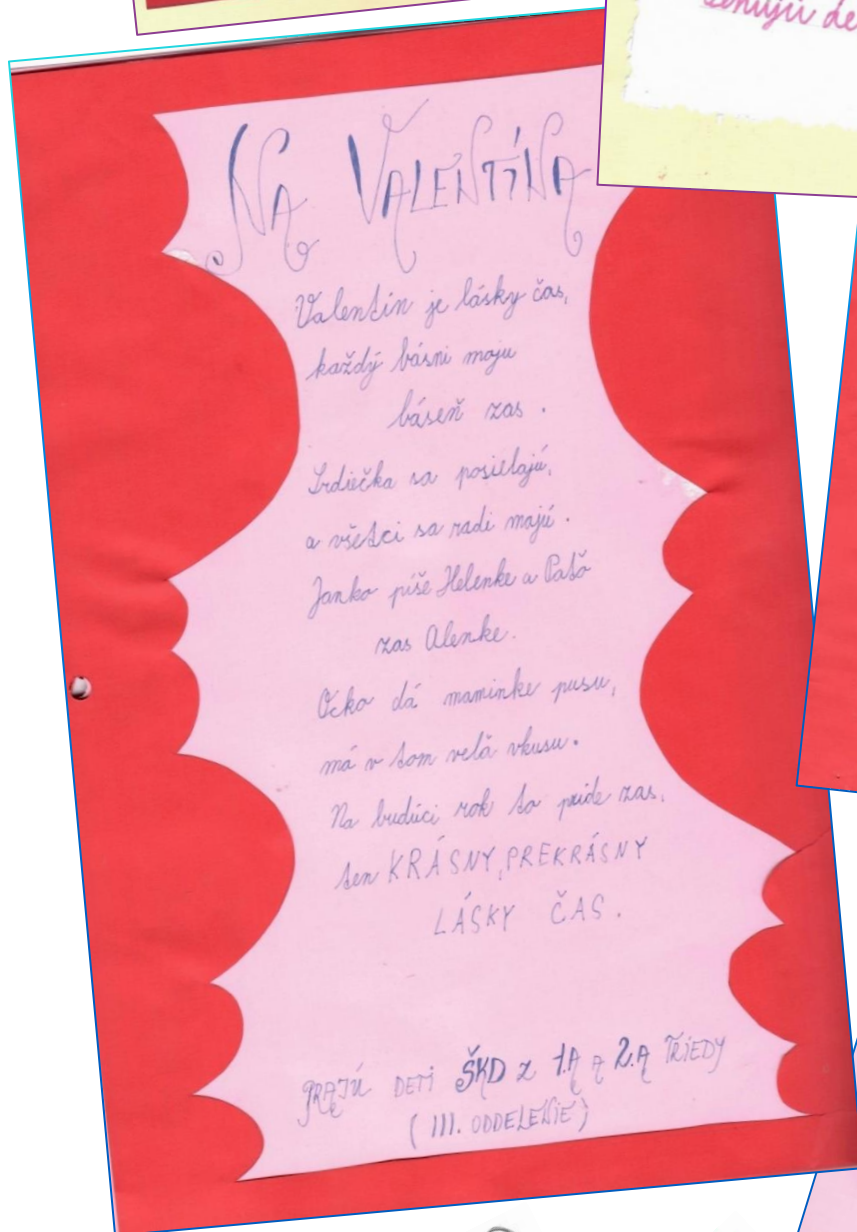 venujú de
NA VALENTÍNA
Valentín je lásky čas,
každý básni moju
báseň zas.
Srdiečka sa posielajú,
a všetci sa radi majú.
Janko píše Helenke a Paťo
zas Alenke.
Ocko dá maminke pusu,
má v tom velă vkusu.
Na budúci rok to príde zas,
ten KRÁSNY, PREKRÁSNY
LÁSKY ČAS.
PRAJÚ DETI ŠKD z 1.A A 2.A TRIEDY
(III. ODDELENIE)